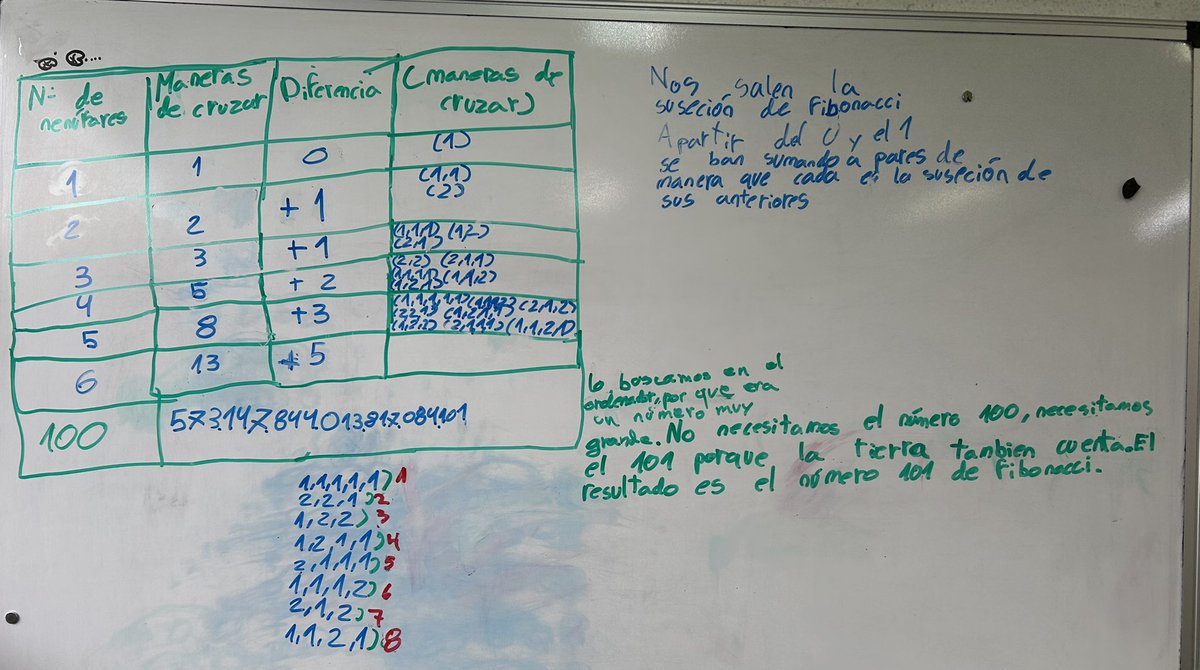 Nº de nenúfares | Maneras de cruzar | Diferencia | (maneras de cruzar)
1 | 1 | 0 | (1)
2 | 2 | +1 | (1,1) (2)
3 | 3 | +1 | (1,1,1) (1,2) (2,1)
4 | 5 | +2 | (2,2) (2,1,1) (1,1,1,1) (1,1,2) (1,2,1)
5 | 8 | +3 | (1,1,1,1,1) (2,1,2) (2,2,1) (1,2,1,1) (1,2,2) (2,1,1,1) (1,1,2,1)
6 | 13 | +5
100 | 573.147.844.013.817.084.101
Nos salen la
suseción de Fibonacci
Apartir del 0 y el 1
se ban sumando a pares de
manera que cada es la suseción de
sus anteriores
lo boscamos en el
ordenador, por que era
un número muy
grande. No necesitamos el número 100, necesitamos
el 101 porque la tierra tambien cuenta. El
resultado es el número 101 de Fibonacci.
1,1,1,1,1) 1
2,2,1) 2
1,2,2) 3
1,2,1,1) 4
2,1,1,1) 5
1,1,1,2) 6
2,1,2) 7
1,1,2,1) 8